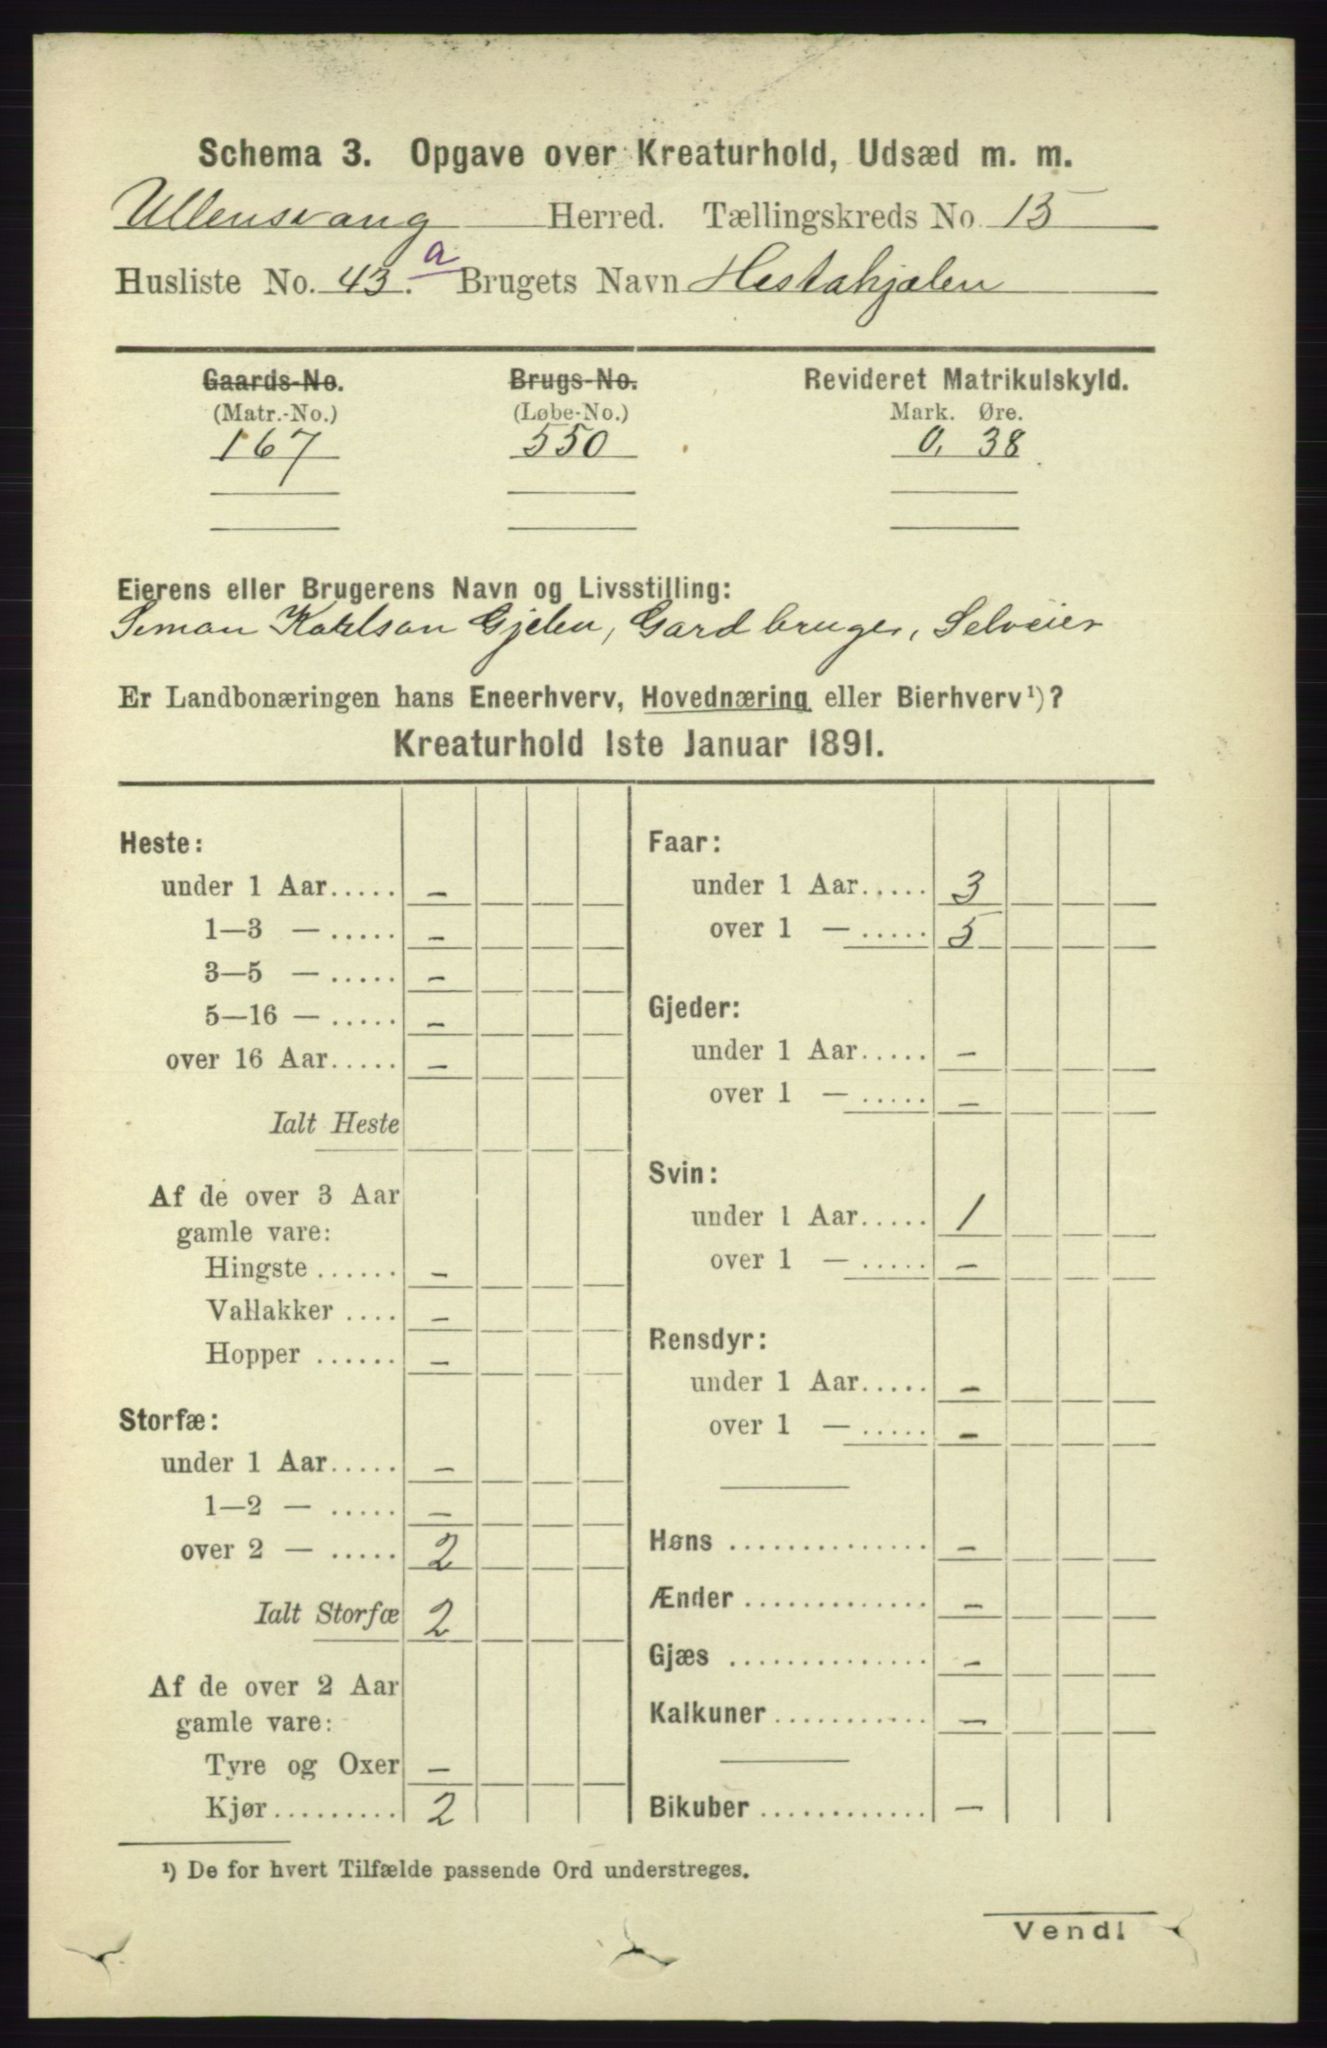 Schema 3. Opgave over Kreaturhold, Udsæd m. m.
Ullensvang Herred. Tællingskreds No. 15
Husliste No. 43.a Brugets Navn Hestahjælen
Gaards-No. Brugs-No. Revideret Matrikulskyld.
(Matr.-No.) (Løbe-No.) Mark. Øre.
167 550 0, 38
Eierens eller Brugerens Navn og Livsstilling:
Simon Gjelen, Gardbruger, Selveier
Er Landbonæringen hans Eneerhverv, Hovednæring eller Bierhverv¹)?
Kreaturhold 1ste Januar 1891.
Heste:
under 1 Aar..... –
1—3 — ..... –
3—5 — ..... –
5—16 — ..... –
over 16 Aar..... –
Ialt Heste
Af de over 3 Aar
gamle vare:
Hingste ...... –
Vallakker .... –
Hopper ...... –
Storfæ:
under 1 Aar..... –
1—2 — ..... –
over 2 — ..... 2
Ialt Storfæ 2
Af de over 2 Aar
gamle vare:
Tyre og Oxer –
Kjør......... 2
Faar:
under 1 Aar..... 3
over 1 — ..... 5
Gjeder:
under 1 Aar..... –
over 1 — ..... –
Svin:
under 1 Aar..... 1
over 1 — ..... –
Rensdyr:
under 1 Aar..... –
over 1 — ..... –
Høns .............. –
Ænder ............. –
Gjæs .............. –
Kalkuner........... –
Bikuber ............ –
¹) De for hvert Tilfælde passende Ord understreges.
Vend!